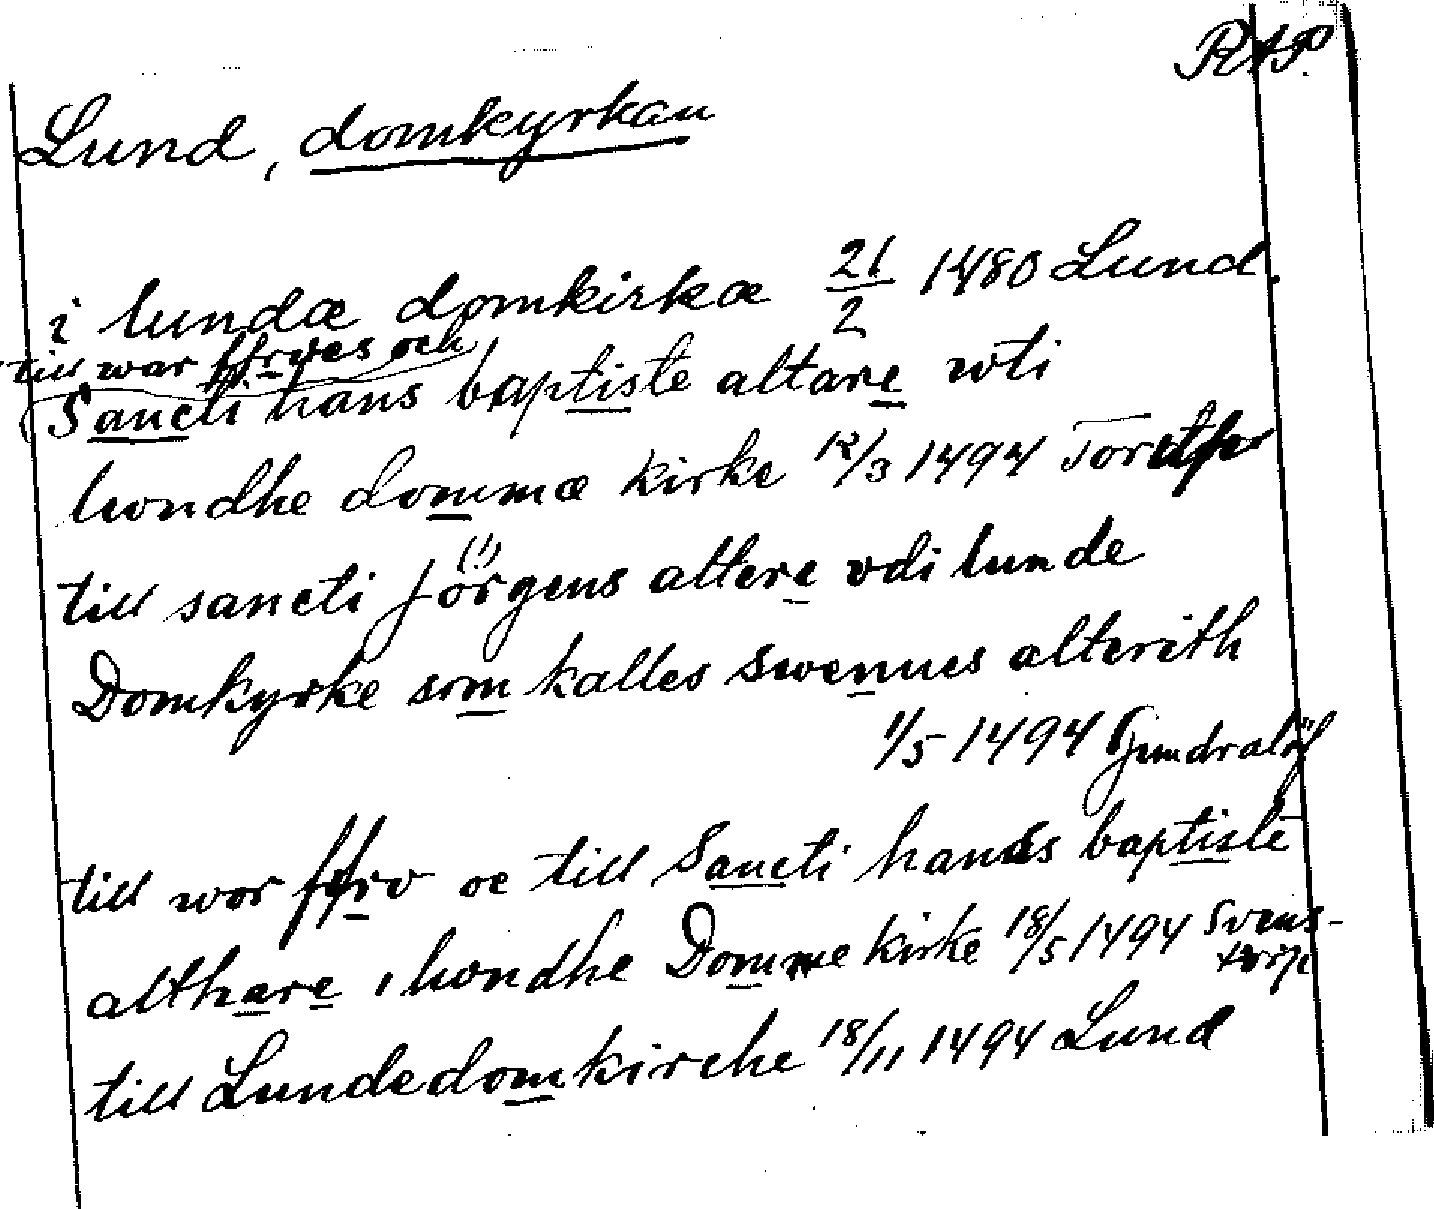 RAP.
Lund, domkyrkan
i lundæ domkirkæ 21/2 1480 Lund.
till war ffrves och
Sancti hans baptiste altare wti
lwndhe dommæ kirke 12/3 1494
till sancti Jörgens altere vdi lunde
Domkyrke som kalles Swennes alterith
1/5 1494 Gundralöf
till wor ffrv oc till Sancti hans baptiste
althare i lwndhe Domme kirke 18/5 1494 Svens-
torp
till Lundedomkirche 18/11 1494 Lund